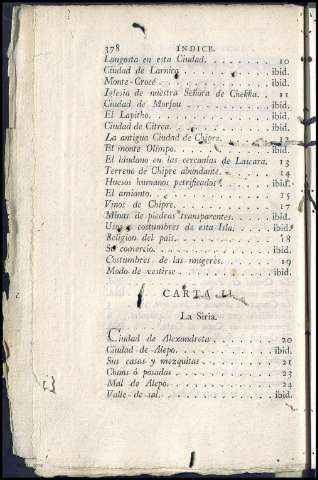 378 ÍNDICE.
Langosta en esta Ciudad. . . . . . . . . . 10
Ciudad de Larnica . . . . . . . . . . ibid.
Monte-Crocé . . . . . . . . . . ibid.
Iglesia de nuestra Señora de Chekka. . . 11
Ciudad de Morfou . . . . . . . . . . ibid.
El Lapitho. . . . . . . . . . ibid.
Ciudad de Citrea. . . . . . . . . . ibid.
La antigua Ciudad de Chipre. . . . . . 12
El monte Olimpo. . . . . . . . . . ibid.
El láudano en las cercanías de Lascara. 13
Terreno de Chipre abundante. . . . . . 14
Huesos humanos petrificados . . . . . . ibid.
El amianto. . . . . . . . . . 15
Vinos de Chipre. . . . . . . . . . 17
Minas de piedras transparentes. . . . . ibid.
costumbres de esta Isla. . . . . ibid.
Religion del pais. . . . . . . . . . 18
Su comercio. . . . . . . . . . ibid.
Costumbres de las mugeres. . . . . . . 19
Modo de vestirse . . . . . . . . . . ibid.
CARTA II.
La Siria.
Ciudad de Alexandreta . . . . . . . . . . 20
Ciudad de Alepo. . . . . . . . . . ibid.
Sus casas y mezquitas . . . . . . . . . . 21
Chans ó posadas . . . . . . . . . . 23
Mal de Alepo. . . . . . . . . . 24
Valle de sal. . . . . . . . . . ibid.